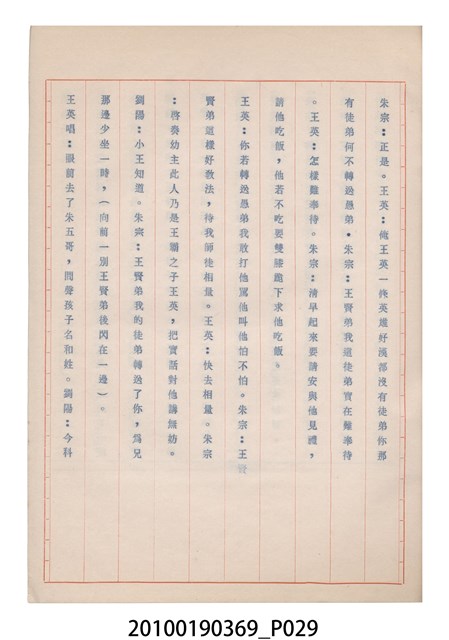 朱宗：正是。王英：俺王英一挽英雄好漢都沒有徒弟你那
有徒弟何不轉送愚弟。朱宗：王賢弟我這徒弟實在難奉待
。王英：怎樣難奉待。朱宗：清早起來要請安與他見禮，
請他吃飯，他若不吃要雙膝跪下求他吃飯。
王英：你若轉送愚弟我敢打他罵他叫他怕不怕。朱宗：王賢
賢弟這樣好教法，待我師徒相量。王英：快去相量。朱宗
：啓奏幼主此人乃是王霸之子王英，把實話對他講無妨。
劉陽：小王知道。朱宗：王賢弟我的徒弟轉送了你，爲兄
那邊少坐一時，（向前一別王賢弟後閃在一邊）。
王英唱：眼前去了朱五哥，問聲孩子名和姓。劉陽：今科
20100190369_P029